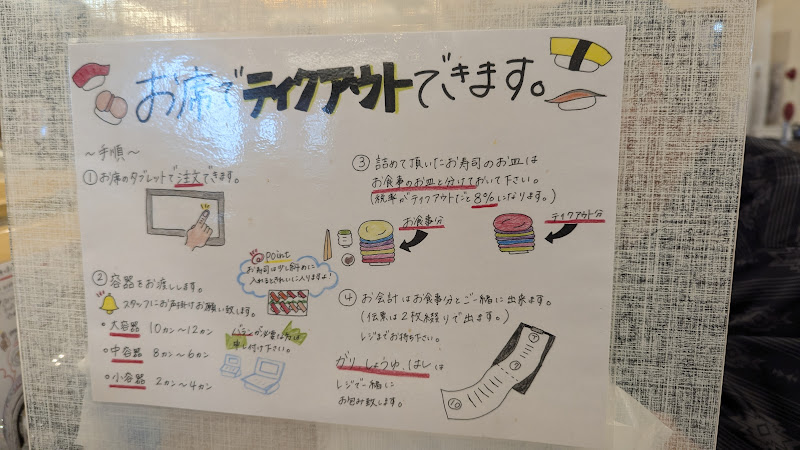 お席でテイクアウトできます。
～手順～
①お席のタブレットで注文できます。
②容器をお渡しします。
スタッフにお声掛けお願い致します。
•大容器 10カン～12カン
•中容器 8カン～6カン
•小容器 2カン～4カン
@point
お寿司は少し斜めに
入れるときれいに入りますよ!
バランが必要な方は
申し付け下さい。
③詰めて頂いたお寿司のお皿は
お食事のお皿と分けておいて下さい。
(税率がテイクアウトだと8%になります。)
お食事分
テイクアウト分
④お会計はお食事分とご一緒に出来ます。
(伝票は2枚綴りで出ます。)
レジまでお持ち下さい。
ガリ、しょうゆ、はしは
レジで一緒に
お包み致します。